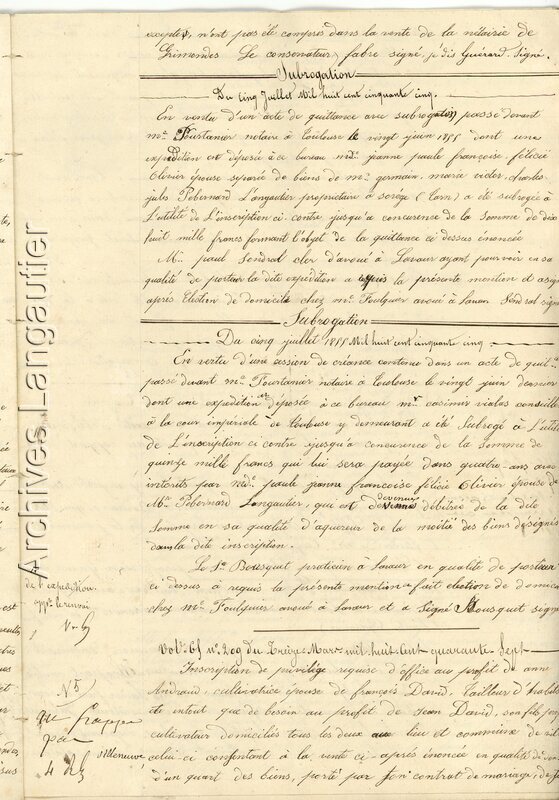 exceptés, n'ont pas été compris dans la vente de la métairie de
Grimendes Le conservateur, fabre signé, p'dis Guérard. Signé.
Subrogation
Du cinq Juillet Mil huit cent cinquante cinq.
En vertu d'un acte de quittance avec subrogation passé devant
me. Pourtanier notaire à toulouse le vingt juin 1855 dont une
expédition est déposée à ce bureau md. jeanne paule françoise félicie
Clivier épouse séparée de biens de mr. germain, marie victor, charles
jules Pebernard L'angautier propriétaire à sorèze (tarn) a été subrogée à
L'utilité de L'inscription ci contre jusqu'a concurence de la somme de dix
huit mille francs formant l'objet de la quittance ci dessus énoncée
Mr. paul Sendral clerc d'avoué à Lavaur ayant pouvoir en sa
qualité de porteur la dite expédition a requis la présente mention et a signé
après élection de domicile chez me. Poulquier avoué à Lavaur Sendral signé
Subrogation
Du cinq juillet 1855 Mil huit cent cinquante cinq.
En vertu d'une cession de créance contenue dans un acte de
passé devant me. Pourtanier notaire à toulouse le vingt juin dernier
dont une expédition est déposée à ce bureau mr. casimir vialas
à la cour impériale de toulouse y demeurant a été Subrogé à
de L'inscription ci contre jusqu'a concurence de la somme de
quinze mille francs qui lui sera payée dans quatre ans avec
intérêts par md. paule jeanne françoise félicie Clivier épouse de
Mr. Pebernard Langautier, qui est devenue débitrice de la dite
somme en sa qualité d'aquereur de la moitié des biens désignés
dans la dite inscription.
Le Sr. Bousquet praticien à Lavaur en qualité de porteur
ci dessus à requis la présente mention fait élection de
chez me. Poulquier avoué à Lavaur et a signé Bousquet signé
de l'expédition
Vol. 65 n°. 209 du Treize Mars mil huit Cent quarante Sept
Inscription de privilège requise d'office au profit de anne
Andraud, cultivatrice épouse de françois David, Tailleur
et entout que de besoin au profit de Jean David, son fils
cultivateur domiciliés tous les deux au lieu et commune de
celui ci confrontant à la vente ci-après énoncée en qualité
d'un quart des biens, porté par son contrat de mariage,
N°5
par
villeneuve
Archives Langautier